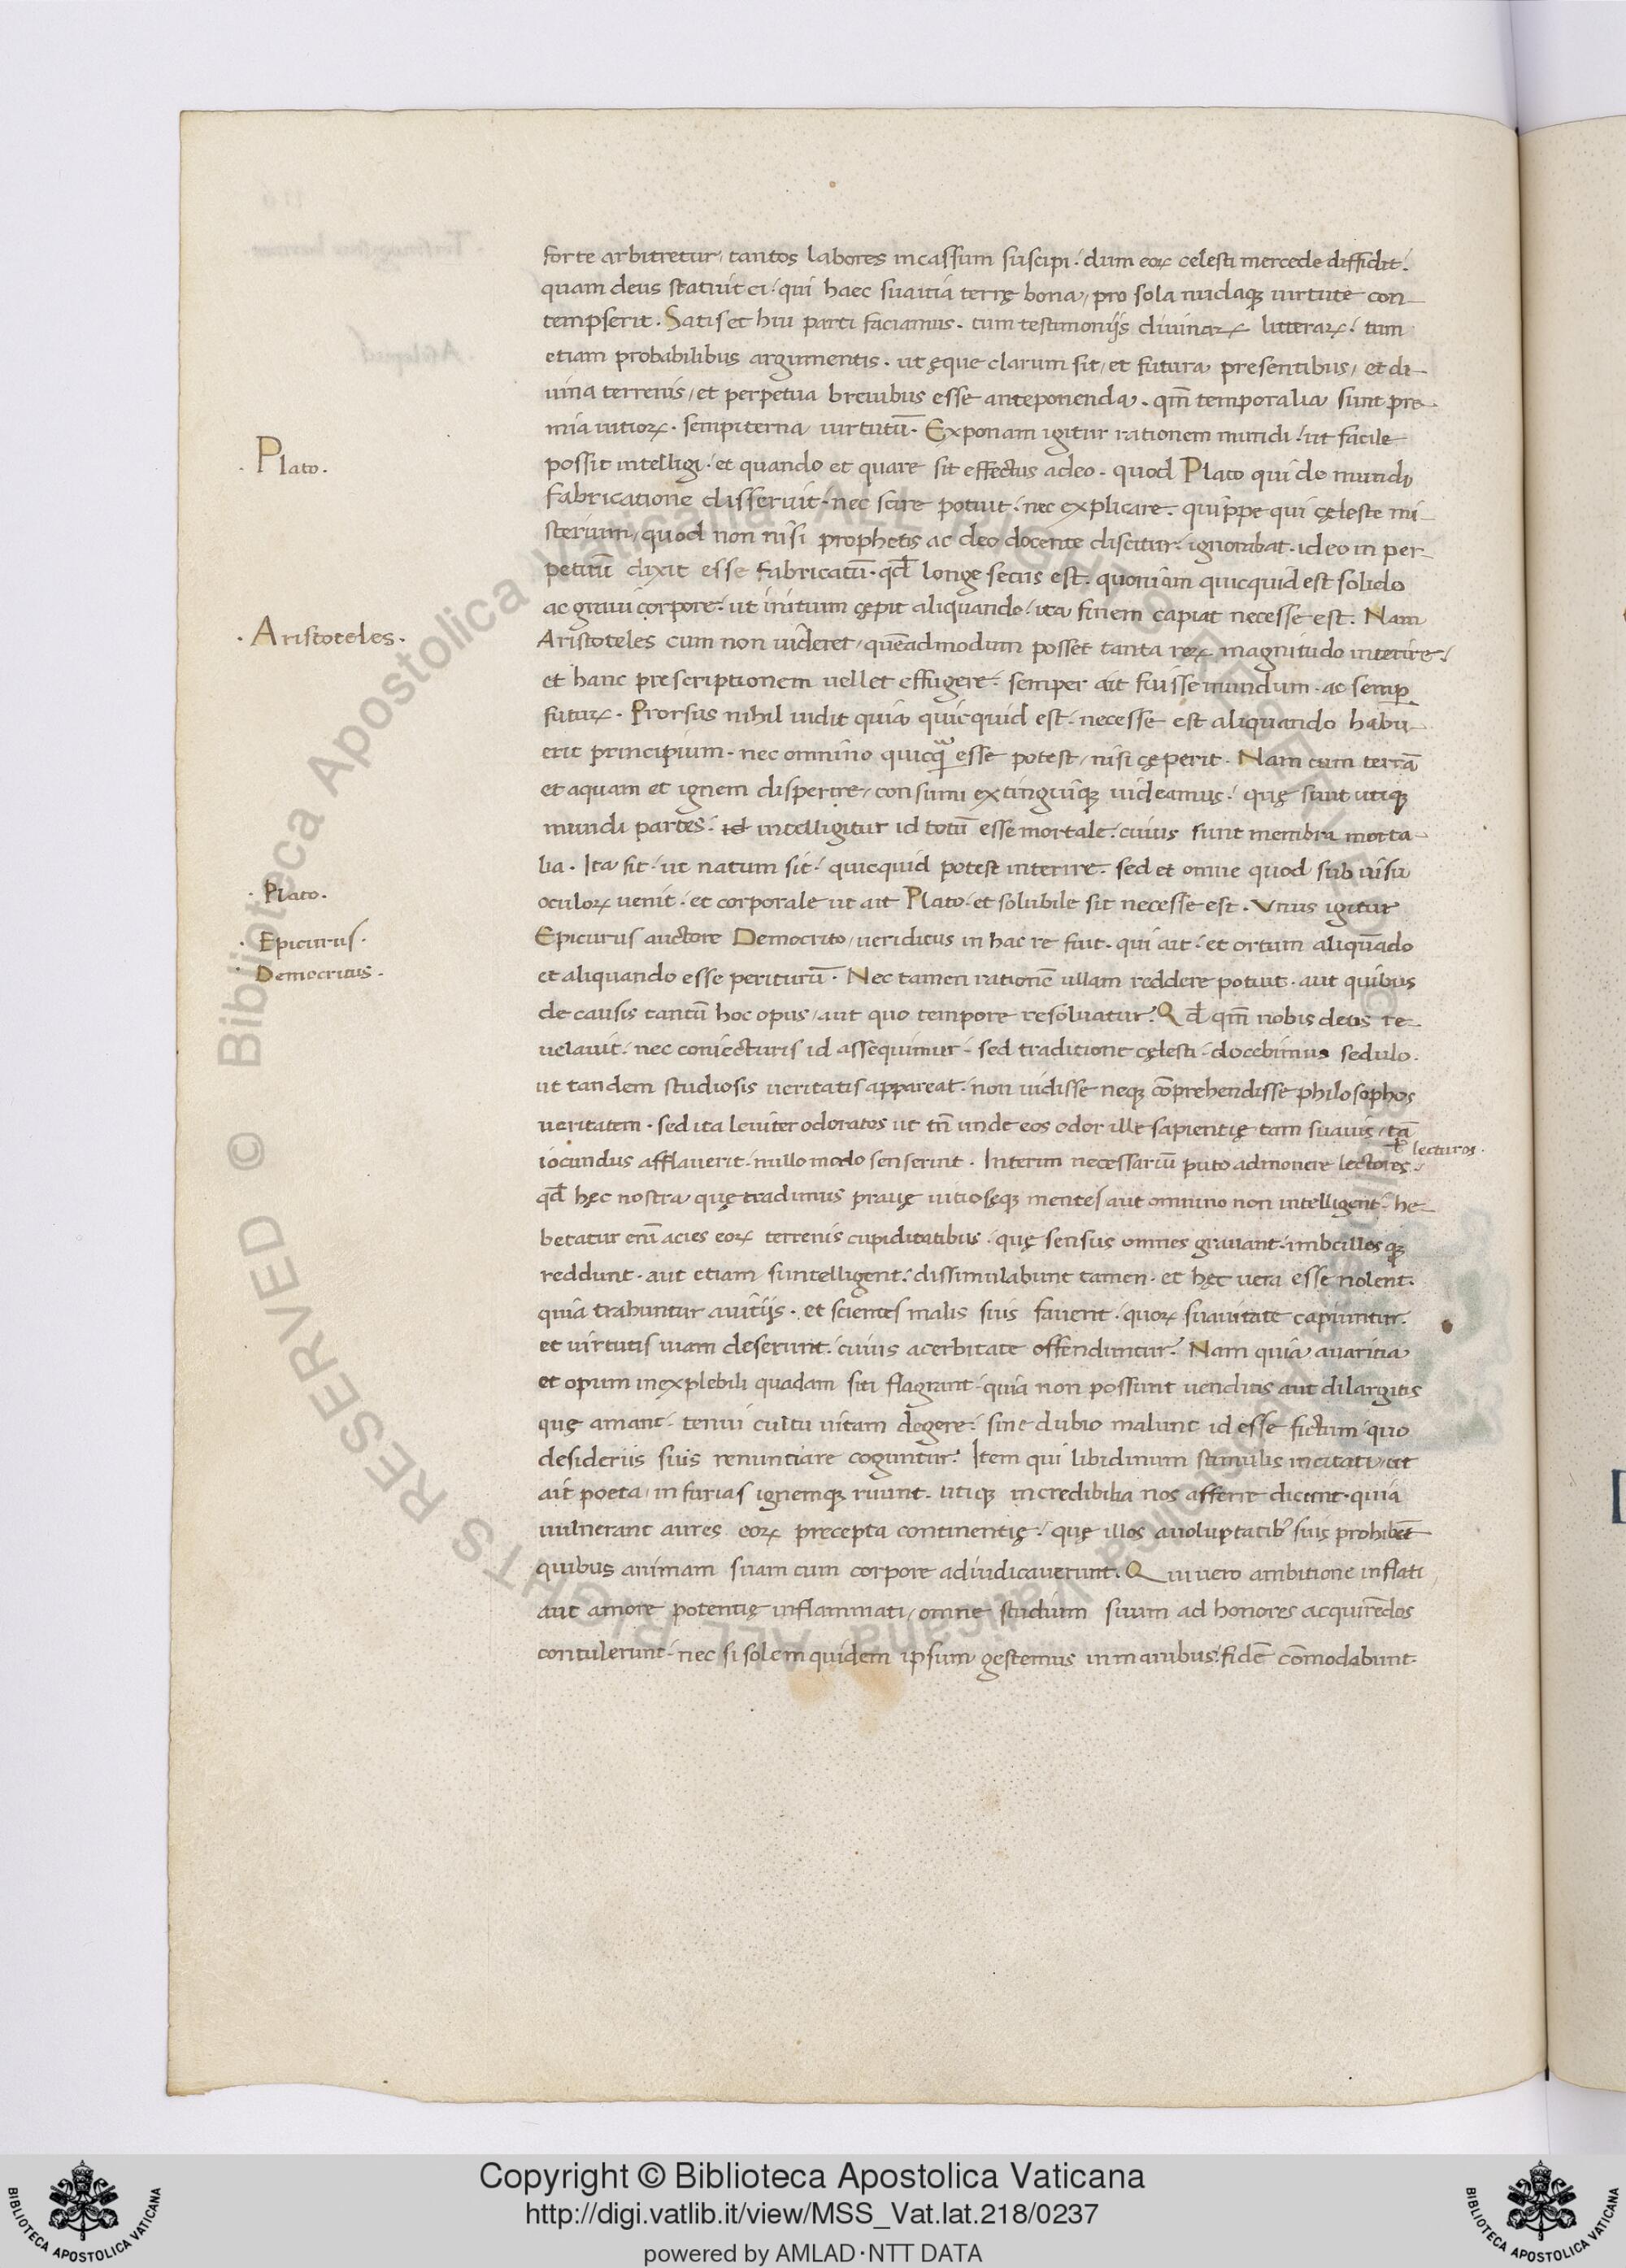 forte arbitretur, tantos labores incassum suscipi. dum eoꝝ celesti mercede diffidit.
quam deus statuit ei. qui haec suauia terrę bona, pro sola nudaqꝫ uirtute con-
tempserit. Satis et huic parti faciamus. tum testimoniis diuinaꝝ litteraꝝ. tum
etiam probabilibus argumentis. ut ęque clarum sit, et futura presentibus, et di-
uina terrenis, et perpetua breuibus esse anteponenda. qm̄ temporalia sunt pre-
mia uitioꝝ. sempiterna uirtutū. Exponam igitur rationem mundi. ut facile
· Plato.
possit intelligi. et quando et quare sit effectus adeo. quod Plato qui de mundi
fabricatione disseruit. nec scire potuit. nec explicare. quippe qui cęleste mi-
sterium, quod non nisi prophetis ac deo docente discitur. ignorabat. ideo in per-
petuū dixit esse fabricatū. qđ longe secus est. quoniam quicquid est solido
ac graui corpore. ut initum cępit aliquando. ita finem capiat necesse est. Nam
· Aristoteles.
Aristoteles cum non uideret, quēadmodum posset tanta reꝝ magnitudo interire.
et hanc prescriptionem uellet effugere. semper ait fuisse mundum. ac semꝑ
futuꝝ. Prorsus nihil uidit quia quicquid est. necesse est aliquando habu-
erit principium. nec omnino quicqꝫ esse potest, nisi cęperit. Nam cum terrā
et aquam et ignem disperire, consumi extinguiqꝫ uideamus. quę sunt utiqꝫ
mundi partes. id intelligitur id totū esse mortale. cuius sunt membra morta-
lia. Ita fit. ut natum sit. quicquid potest interire. sed et omne quod sub uisu
· Plato.
oculoꝝ uenit. et corporale ut ait Plato. et solubile sit necesse est. Vnus igitur
· Epicurus.
Epicurus auctore Democrito, ueridicus in hac re fuit. qui ait. et ortum aliquādo
· Democritus.
et aliquando esse periturū. Nec tamen rationē ullam reddere potuit. aut quibus
de causis tantū hoc opus, aut quo tempore resoluatur. Qđ qm̄ nobis deus re-
uelauit. nec coniecturis id assequimur. sed traditione cęlesti. docebimus sedulo.
ut tandem studiosis ueritatis appareat. non uidisse neqꝫ cōprehendisse philosophos
ueritatem. sed ita leuiter odoratos ut tn̄ unde eos odor ille sapientię tam suauis, tā
iocundus afflauerit. nullo modo senserint. Interim necessariū puto admonere lectores.
lecturos.
qđ hęc nostra quę tradimus prauę uitiosęqꝫ mentes aut omnino non intelligent. he-
betatur enī acies eoꝝ terrenis cupiditatibus. quę sensus omnes grauant. imbcillosqꝫ
reddunt. aut etiam si intelligent. dissimulabunt tamen. et hęc uera esse nolent.
quia trahuntur auitiis. et scientes malis suis fauent. quoꝝ suauitate capiuntur.
et uirtutis uiam deserunt. cuius acerbitate offenduntur. Nam quia auaritia
et opum inexplebili quadam siti flagrant. quia non possunt uenditis aut dilargitis
quę amant. tenui cultu uitam degere. sine dubio malunt id esse fictum quo
desideriis suis renuntiare coguntur. Item qui libidinum stimulis incitati, ut
ait poeta, in furias ignemqꝫ ruunt. utiqꝫ incredibilia nos afferre dicunt. quia
uulnerant aures eoꝝ precepta continentię. quę illos auoluptatibꝰ suis prohibēt
quibus animam suam cum corpore adiudicauerunt. Qui uero ambitione inflati
aut amore potentię inflammati, omne studium suum ad honores acquirēdos
contulerunt. nec si solem quidem ipsum gestemus in manibus. fidē cōmodabunt
Copyright © Biblioteca Apostolica Vaticana
http://digi.vatlib.it/view/MSS_Vat.lat.218/0237
powered by AMLAD·NTT DATA